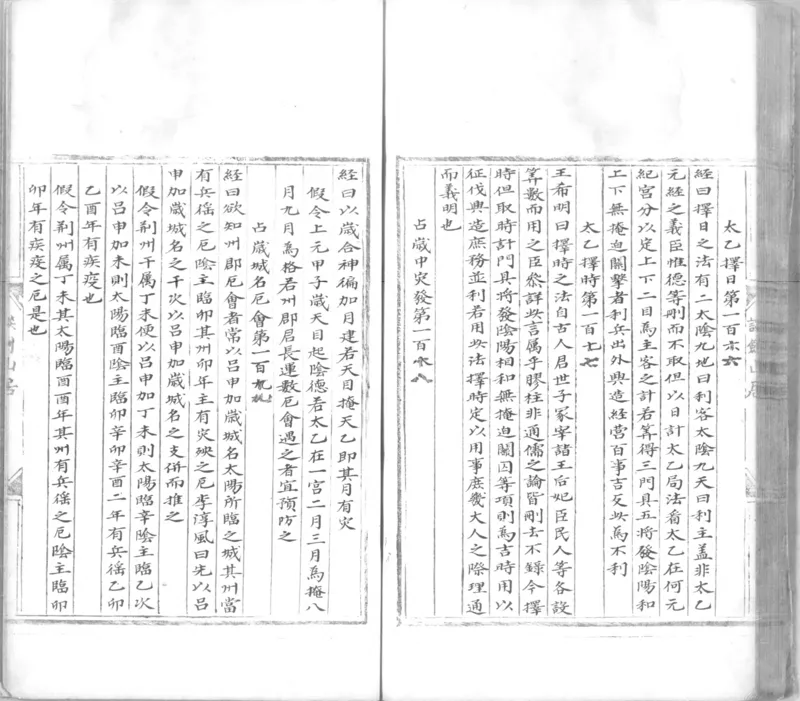 太乙擇日第一百六
經曰擇日之法有二太陰九地曰利客太陰九天曰利主盖非太乙
元經之義臣惟德等刪而不取但以日計太乙局法看太乙在何元
紀宫分以定上下二目為主客之計若筭得三門具五將發陰陽和
上下無掩迫關擊者利兵出外興造經营百事吉反此為不利
太乙擇時第一百七
王希明曰擇時之法自古人君世子冢宰諸王后妃臣民人等各設
筭數而用之臣叅詳此言属乎膠柱非通儒之論皆刪去不錄今擇
時但取時計門具將發陰陽相和無掩迫關囚等項則為吉時用以
征伐興造庶務並利若用此法擇時定以用事庶幾大人之際理通
而義明也
占歲中灾發第一百八
經曰以歲合神徧加月建若天目掩天乙即其月有灾
假令上元甲子歲天目起陰德若太乙在一宫二月三月為掩八
月九月為格若州郡君長運數厄會遇之者宜預防之
占歲城名厄會第一百九
經曰欲知州郡厄會者常以吕申加歲城名太陽所臨之城其州當
有兵徭之厄陰主臨卯其州卯年主有灾殃之厄李淳風曰先以吕
申加歲城名之干次以吕申加歲城名之支併而推之
假令荆州干属丁未便以吕申加丁未則太陽臨辛陰主臨乙次
以吕申加未則太陽臨酉陰主臨卯辛卯辛酉二年有兵徭乙卯
乙酉年有疾疫也
假令荆州属丁未其太陽臨酉酉年其州有兵徭之厄陰主臨卯
卯年有疾疫之厄是也